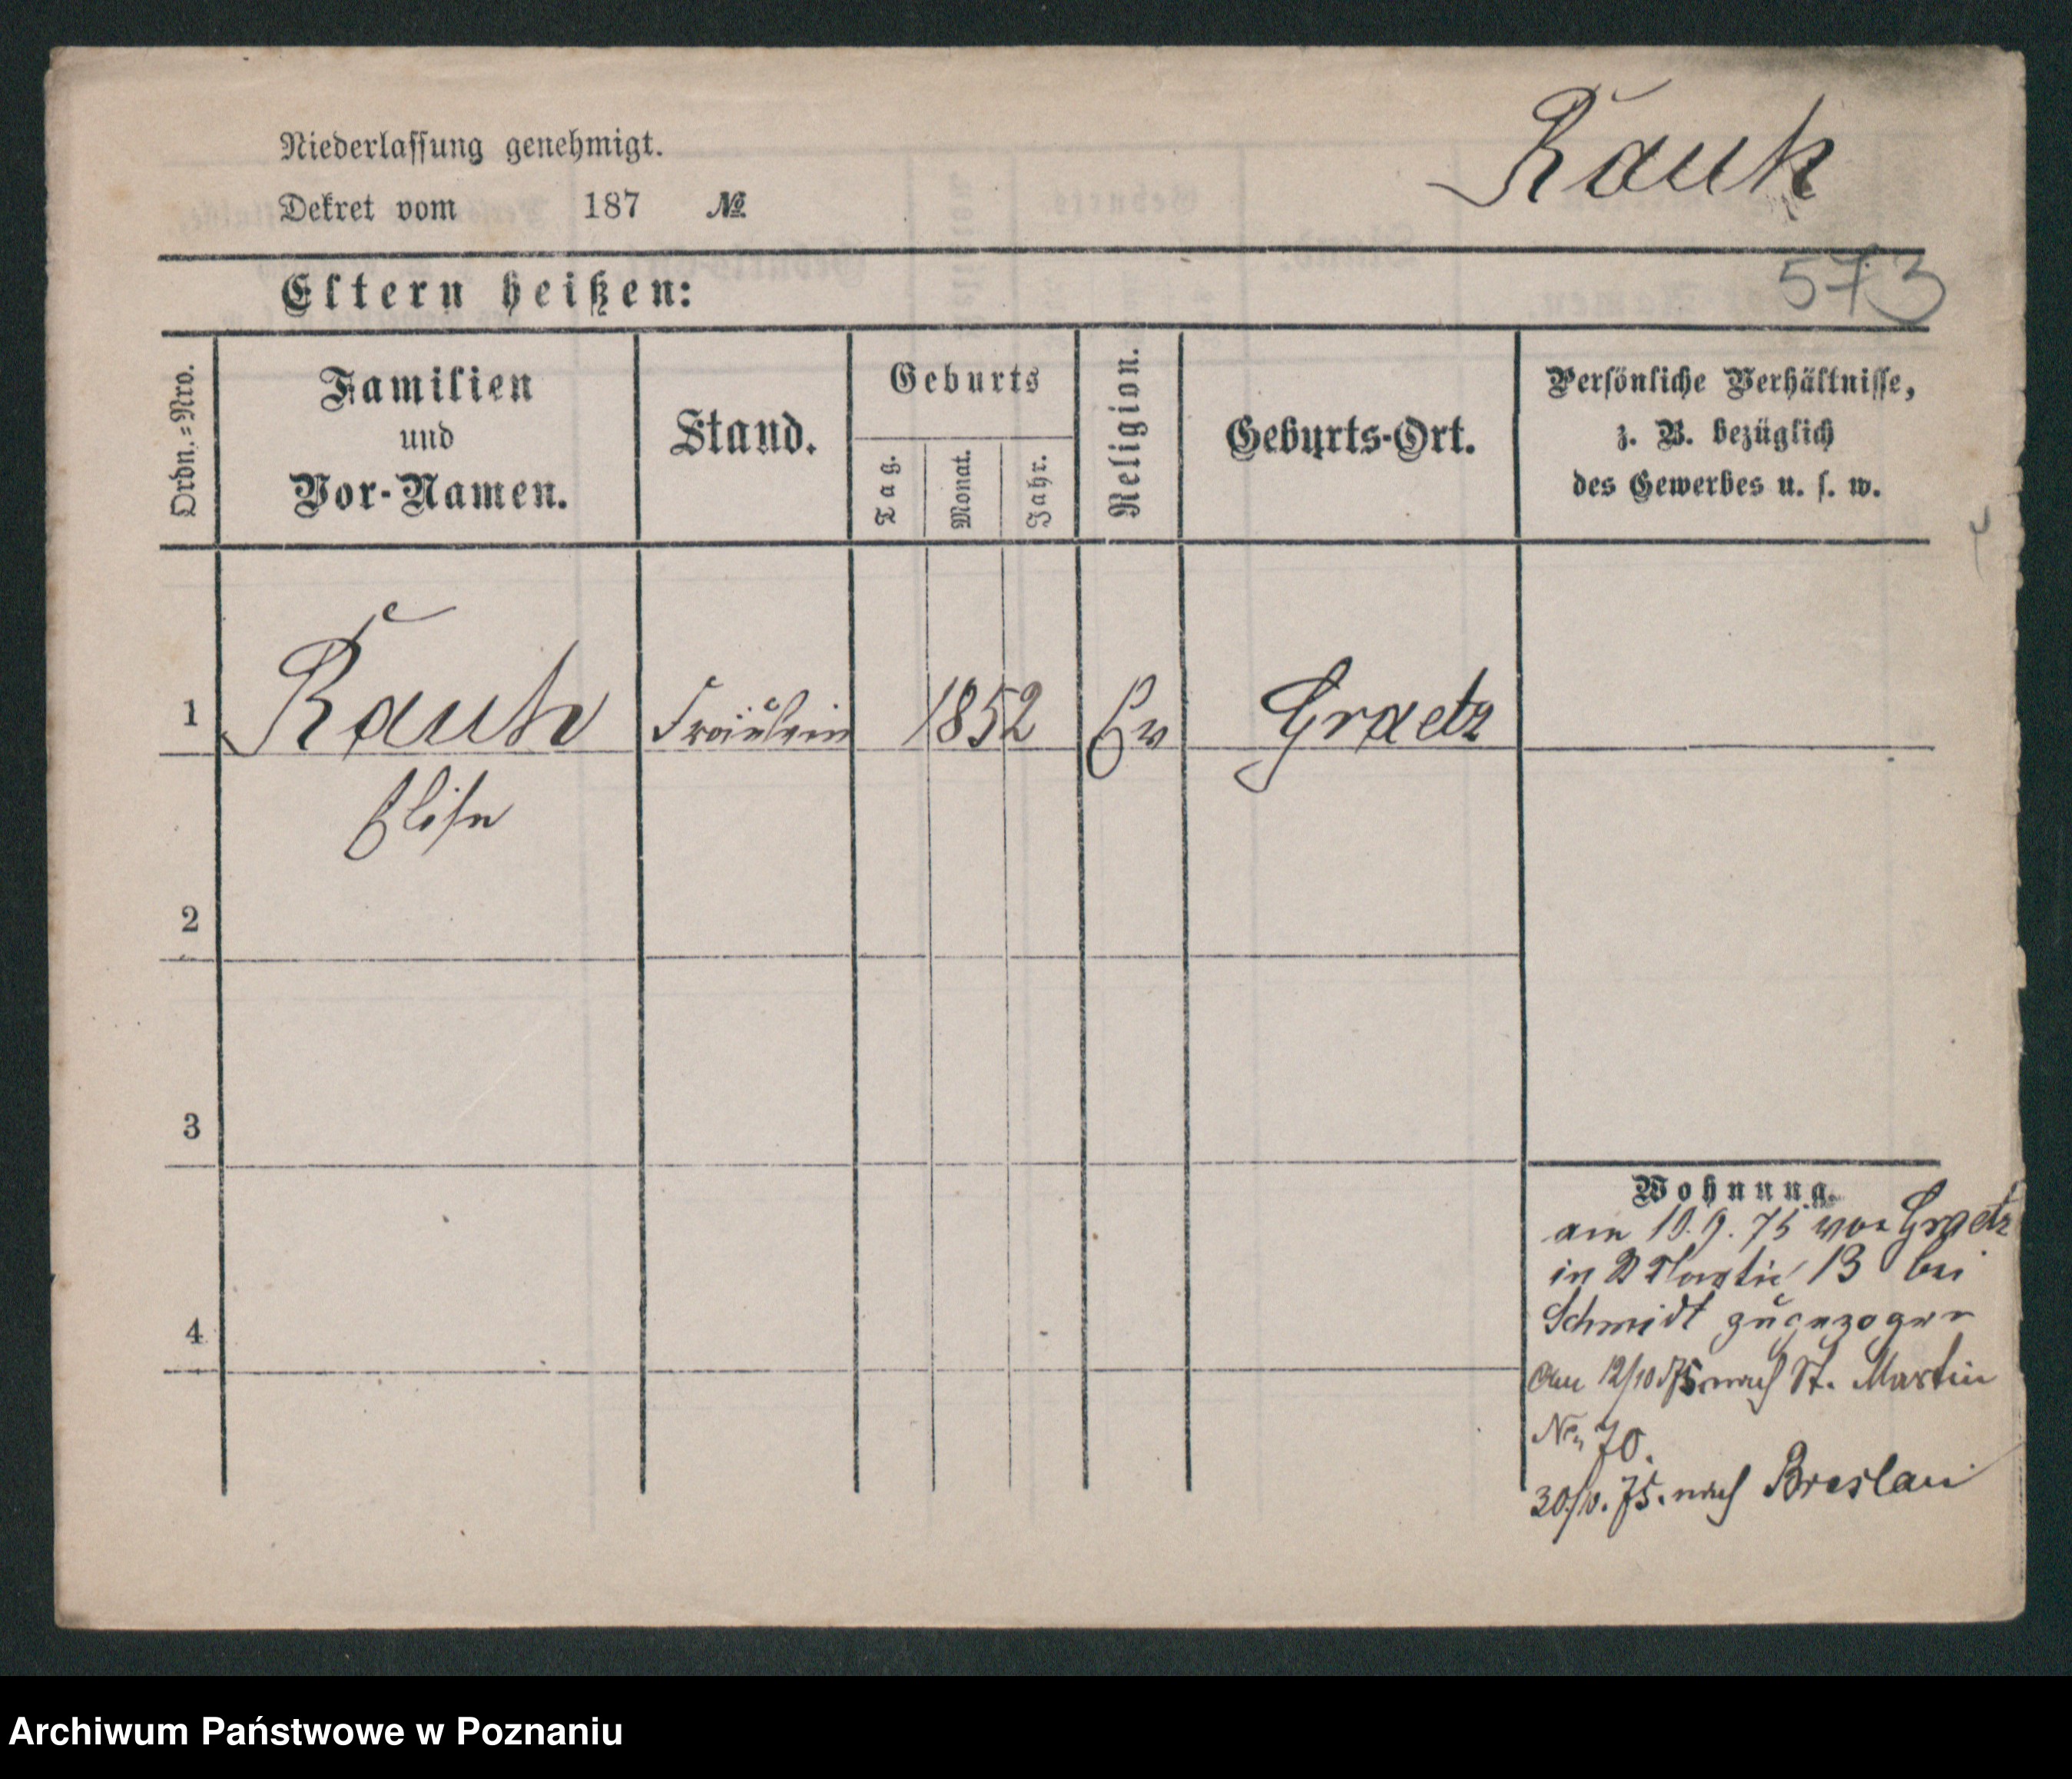 Rauh
Niederlassung genehmigt.
Dekret vom 187 №
573
Eltern heißen:
Ordn.=Nro.
Familien
und
Vor-Namen.
Stand.
Geburts
Tag.
Monat.
Jahr.
Religion.
Geburts-Ort.
Persönliche Verhältnisse,
z. B. bezüglich
des Gewerbes u. s. w.
1 Rauh Fräulein 1852 Ev Graetz
Elise
2
3
4
Wohnung.
am 19.9.75 von Graetz
in 13 bei
Schmidt zugezogen
Am 12/10 75 nach St. Martin
No 70.
30/10.75. nach Breslau
Archiwum Państwowe w Poznaniu